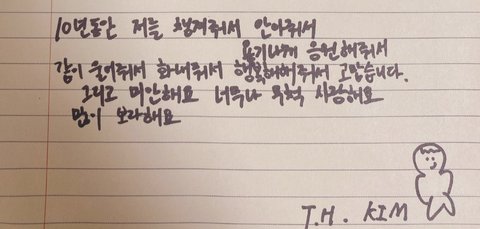 10년동안 저를 챙겨줘서 안아줘서
용기나게 응원해줘서
같이 울어줘서 화내줘서 행복해해줘서 고맙습니다.
그리고 미안해요 너무나 무척 사랑해요
많이 보라해요
T.H. KIM